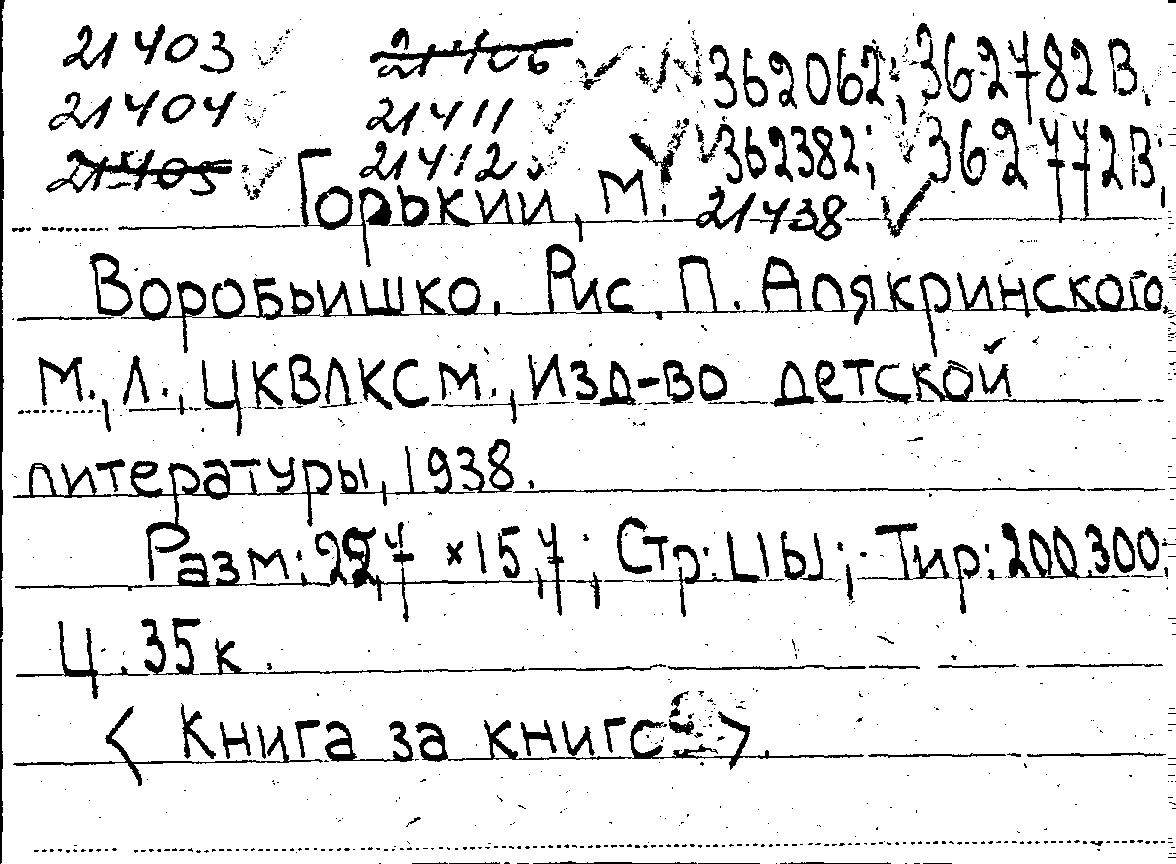 21403 21406 362062; 362782 В.
21404 21411 362382; 362772 В,
21405 21412.
Горький, М. 21438
Воробьишко. Рис. П. Алякринского.
М., Л., ЦКВЛКСМ., Изд-во детской
литературы, 1938.
Разм: 22,7 ×15,7; Стр: Тир: 200.300;
Ц. 35 к.
< Книга за книгой >.